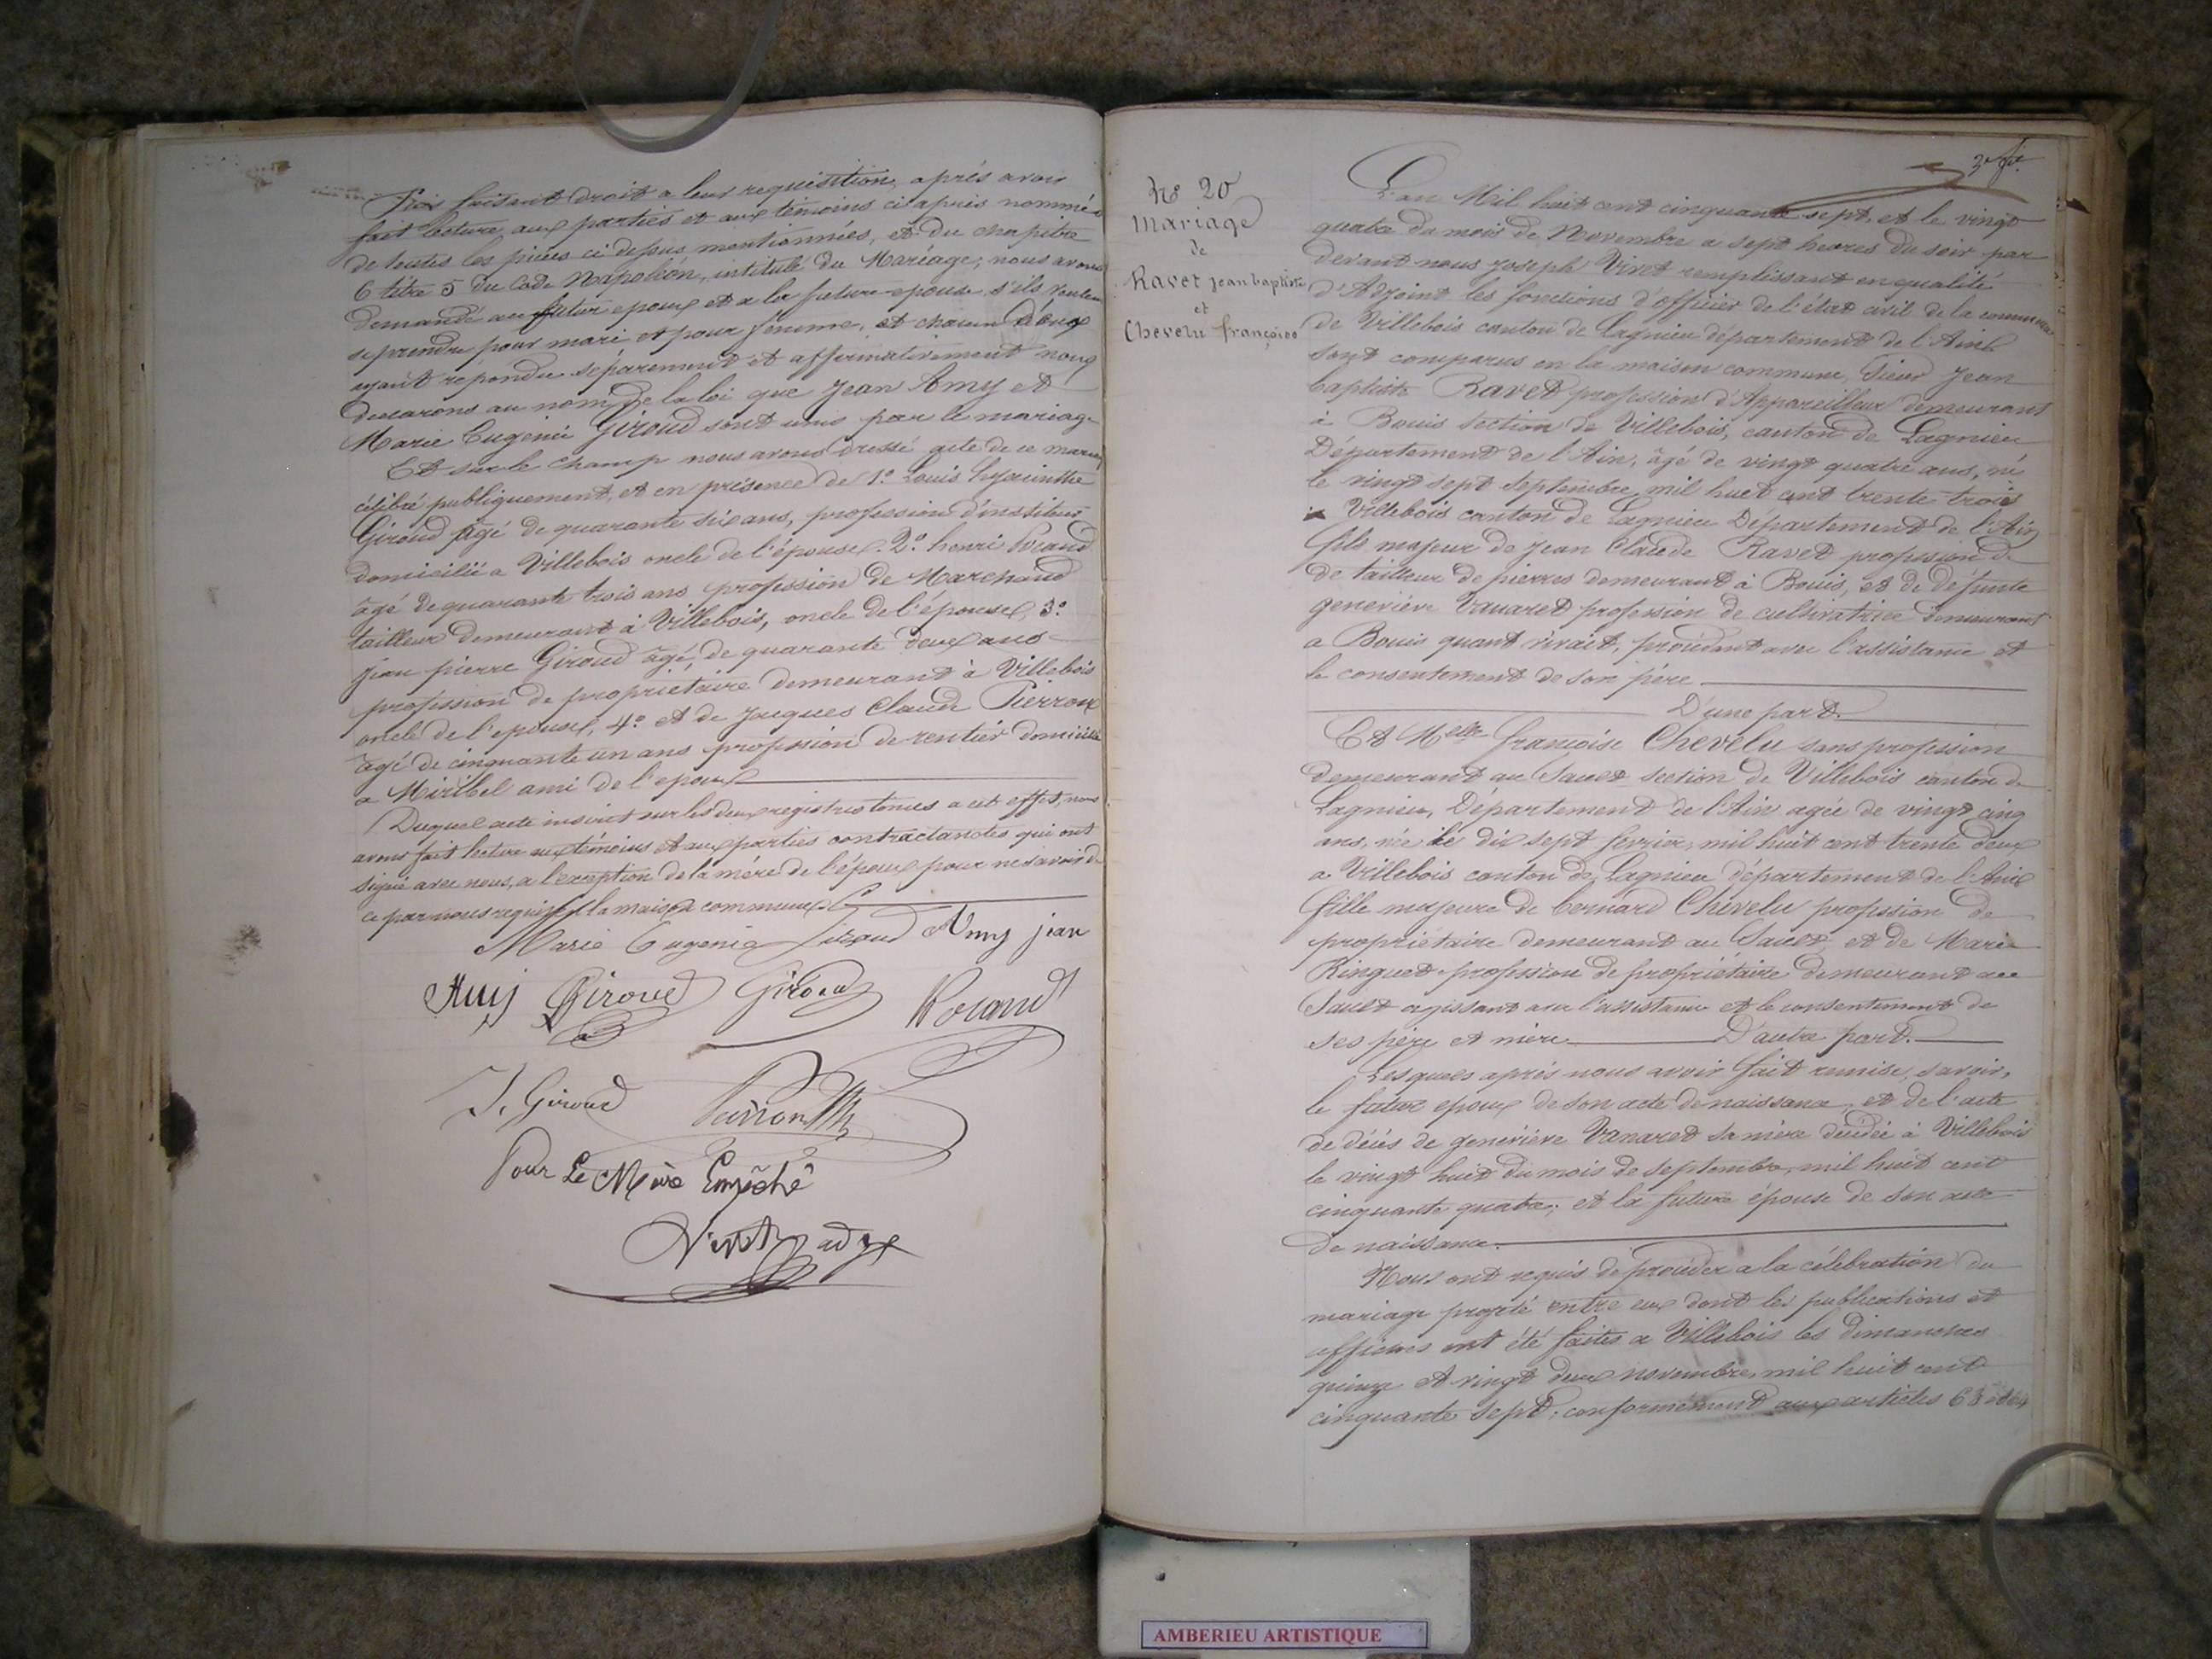 fois faisant droit a leur requisition, aprés avoir
fait lecture aux parties et aux témoins ci après nommés
de toutes les pièces ci dessus mentionnées, et du chapitre
6 titre 5 du Code Napoléon, intitulé du Mariage; nous avons
demandé au futur epoux et a la future epouse s'ils veulent
se prendre pour mari et pour femme, et chacun d'eux
ayant repondu séparement et affirmativement nous
declarons au nom de la loi que Jean Amy et
Marie Eugenie Giroud sont unis par le mariage
Et sur le champ nous avons dressé acte de ce mariage
célébré publiquement, et en présence de 1º Louis hyacinthe
Giroud âgé de quarante six ans, profession d'instituteur
domicilié a Villebois oncle de l'épouse. 2º henri
âgé de quarante trois ans profession de Marchand
tailleur demeurant à Villebois, oncle de l'épouse, 3º
jean pierre Giroud âgé, de quarante deux ans
profession de proprietaire demeurant à Villebois
oncle de l'epouse, 4º et de Jacques Claude Pierron
âgé de cinquante un ans profession de rentier domicilié
a Miribel ami de l'epoux
Duquel acte inscrit sur les deux registres tenus a cet effet, nous
avons fait lecture aux témoins et aux parties contractantes qui ont
signé avec nous, a l'exception de la mére de l'époux pour ne savoir de
ce par nous requise a la maison commune
Marie Eugenie Giroud Amy jean
Amy Giroud Giroud
J. Giroud
Pour Le Maire Empêché
Vivet adj
3e fe.
No 20
Mariage
de
Ravet jean baptiste
et
Chevelu françoise
L'an Mil huit cent cinquante sept, et le vingt
quatre du mois de Novembre a sept heures du soir par
devant nous Joseph Vivet remplissant en qualité
d'Adjoint les fonctions d'officier de l'état civil de la commune
de Villebois canton de Lagnieu département de l'Ain
sont comparus en la maison commune, Sieur Jean
baptiste Ravet profession d'Appareilleur demeurant
à Bouis section de Villebois, canton de Lagnieu
Département de l'Ain, âgé de vingt quatre ans, né
le vingt sept septembre mil huit cent trente trois
a Villebois canton de Lagnieu Département de l'Ain
fils majeur de Jean Claude Ravet profession de
de tailleur de pierres demeurant à Bouis, et de défunte
geneviève Vanaret profession de cultivatrice demeurant
a Bouis quant vivait, procédant avec l'assistance et
le consentement de son père
D'une part.
Et Melle françoise Chevelu sans profession
demeurant au Sault section de Villebois canton de
Lagnieu, Département de l'Ain agée de vingt cinq
ans, née le dix sept fevrier, mil huit cent trente deux
a Villebois canton de Lagnieu département de l'Ain
fille majeure de bernard Chevelu profession de
propriétaire demeurant au Sault, et de Marie
Ringuet profession de propriétaire demeurant au
Sault agissant avec l'assistance et le consentement de
ses père et mère D'autre part.
Lesquels après nous avoir fait remise, savoir,
le futur epoux de son acte de naissance, et de l'acte
de décès de geneviève Vanaret sa mère décédée à Villebois
le vingt huit du mois de septembre, mil huit cent
cinquante quatre; et la future épouse de son acte
de naissance.
Nous ont requis de procéder a la célébration du
mariage projeté entre eux dont les publications et
affiches ont été faites a Villebois les dimanches
quinze et vingt deux novembre, mil huit cent
cinquante sept; conformément aux articles 63 et 64
AMBERIEU ARTISTIQUE